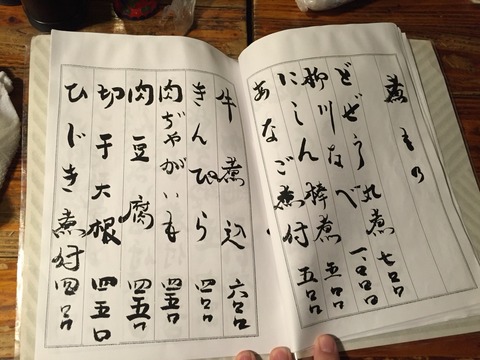 煮もの
どぜう丸煮 七〇〇
柳川なべ 一、〇〇〇
にしん棒煮 五〇〇
あなご煮付 五〇〇
牛煮込 六〇〇
きんぴら 四〇〇
肉ぢゃがいも 四五〇
肉豆腐 四五〇
切干大根 四五〇
ひじき煮付 四〇〇